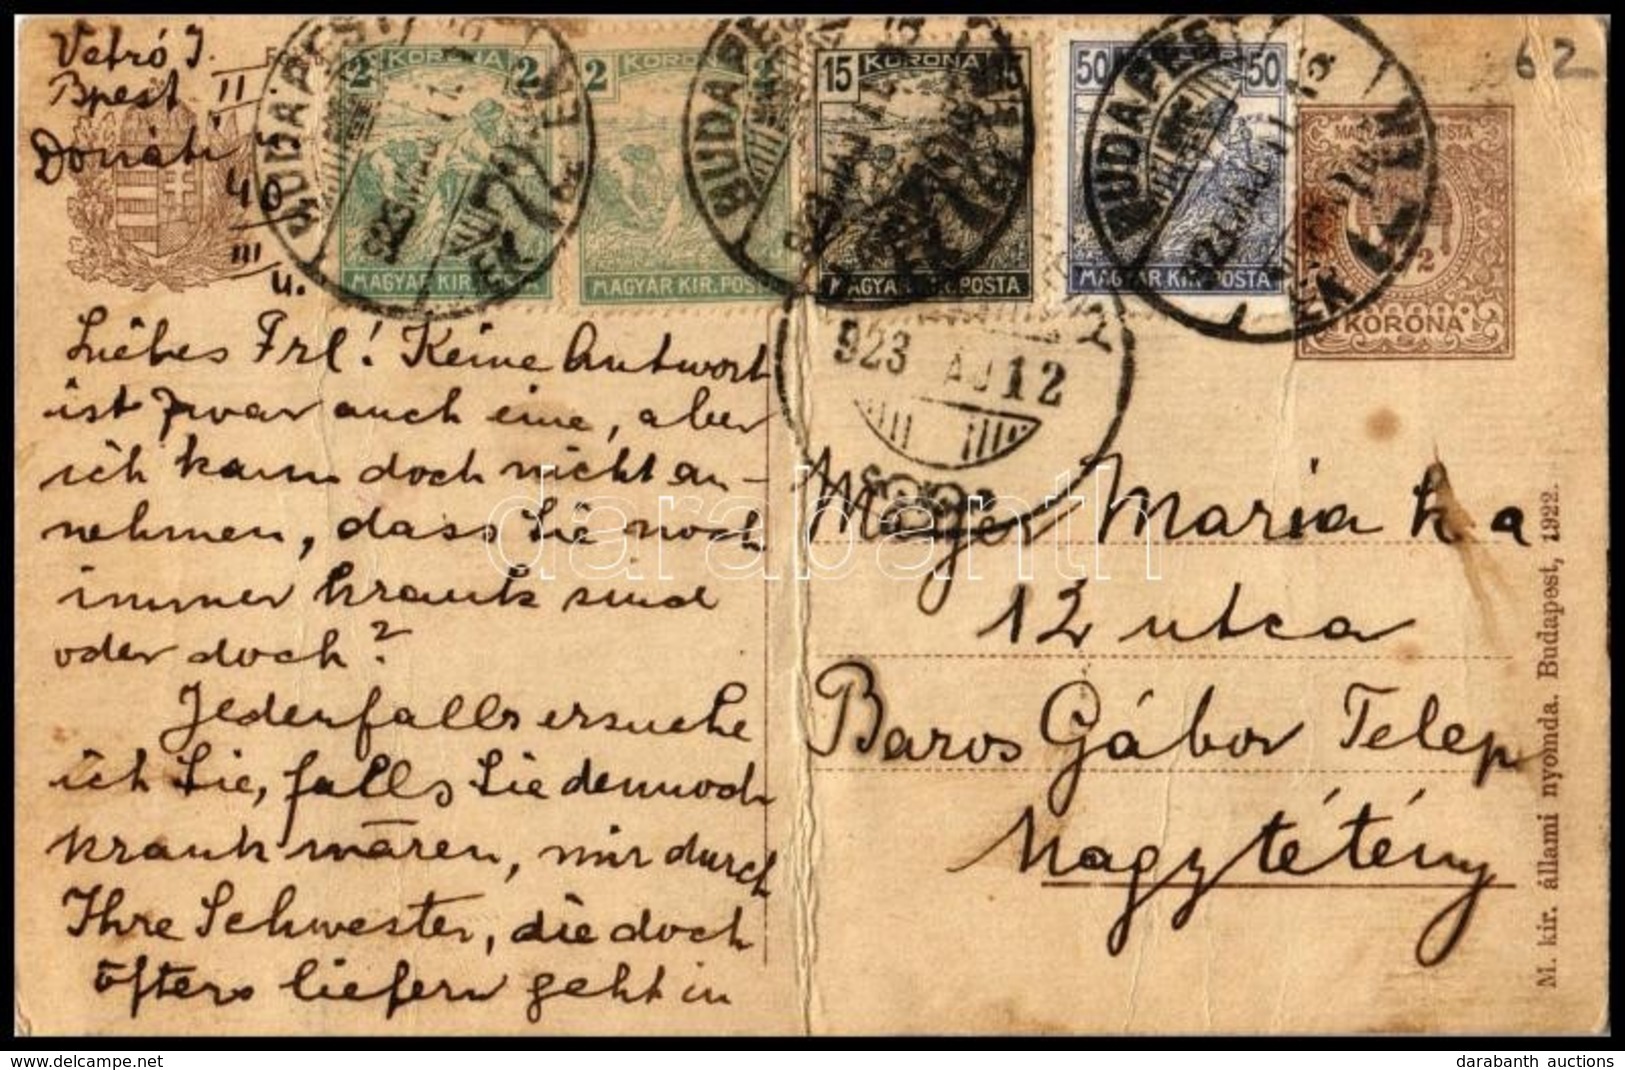 Vetró J.
Bpest II
Donáti
40
III
u.
62
2 KORONA 2
MAGYAR KIR. POSTA
2 KORONA 2
MAGYAR KIR. POSTA
15 KORONA 15
MAGYAR KIR. POSTA
50 50
MAGYAR KIR. POSTA
BUDAPEST
BUDAPEST
BUDAPEST
923 AUG 12
KORONA
Liebes Frl! Keine Antwort
ist zwar auch eine, aber
ich kann doch nicht an-
nehmen, dass Sie noch
immer krank sind
oder doch?
Jedenfalls ersuche
ich Sie, falls Sie dennoch
krank wären, mir durch
Ihre Schwester, die doch
öfters liefern geht in
Mayer Maria k a
12 utca
Baros Gábor Telep
Nagytétény
M. kir. állami nyomda. Budapest, 1922.
darabanth
darabanth auctions